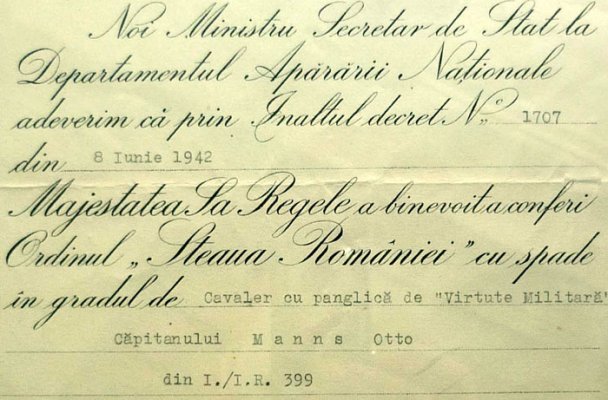 Noi Ministru Secretar de Stat la
Departamentul Apărării Naționale
adeverim că prin Inaltul decret No 1707
din 8 Iunie 1942
Majestatea Sa Regele a binevoit a conferi
Ordinul „Steaua României” cu spade
în gradul de Cavaler cu panglică de "Virtute Militară"
Căpitanului Manns Otto
din I./I.R. 399